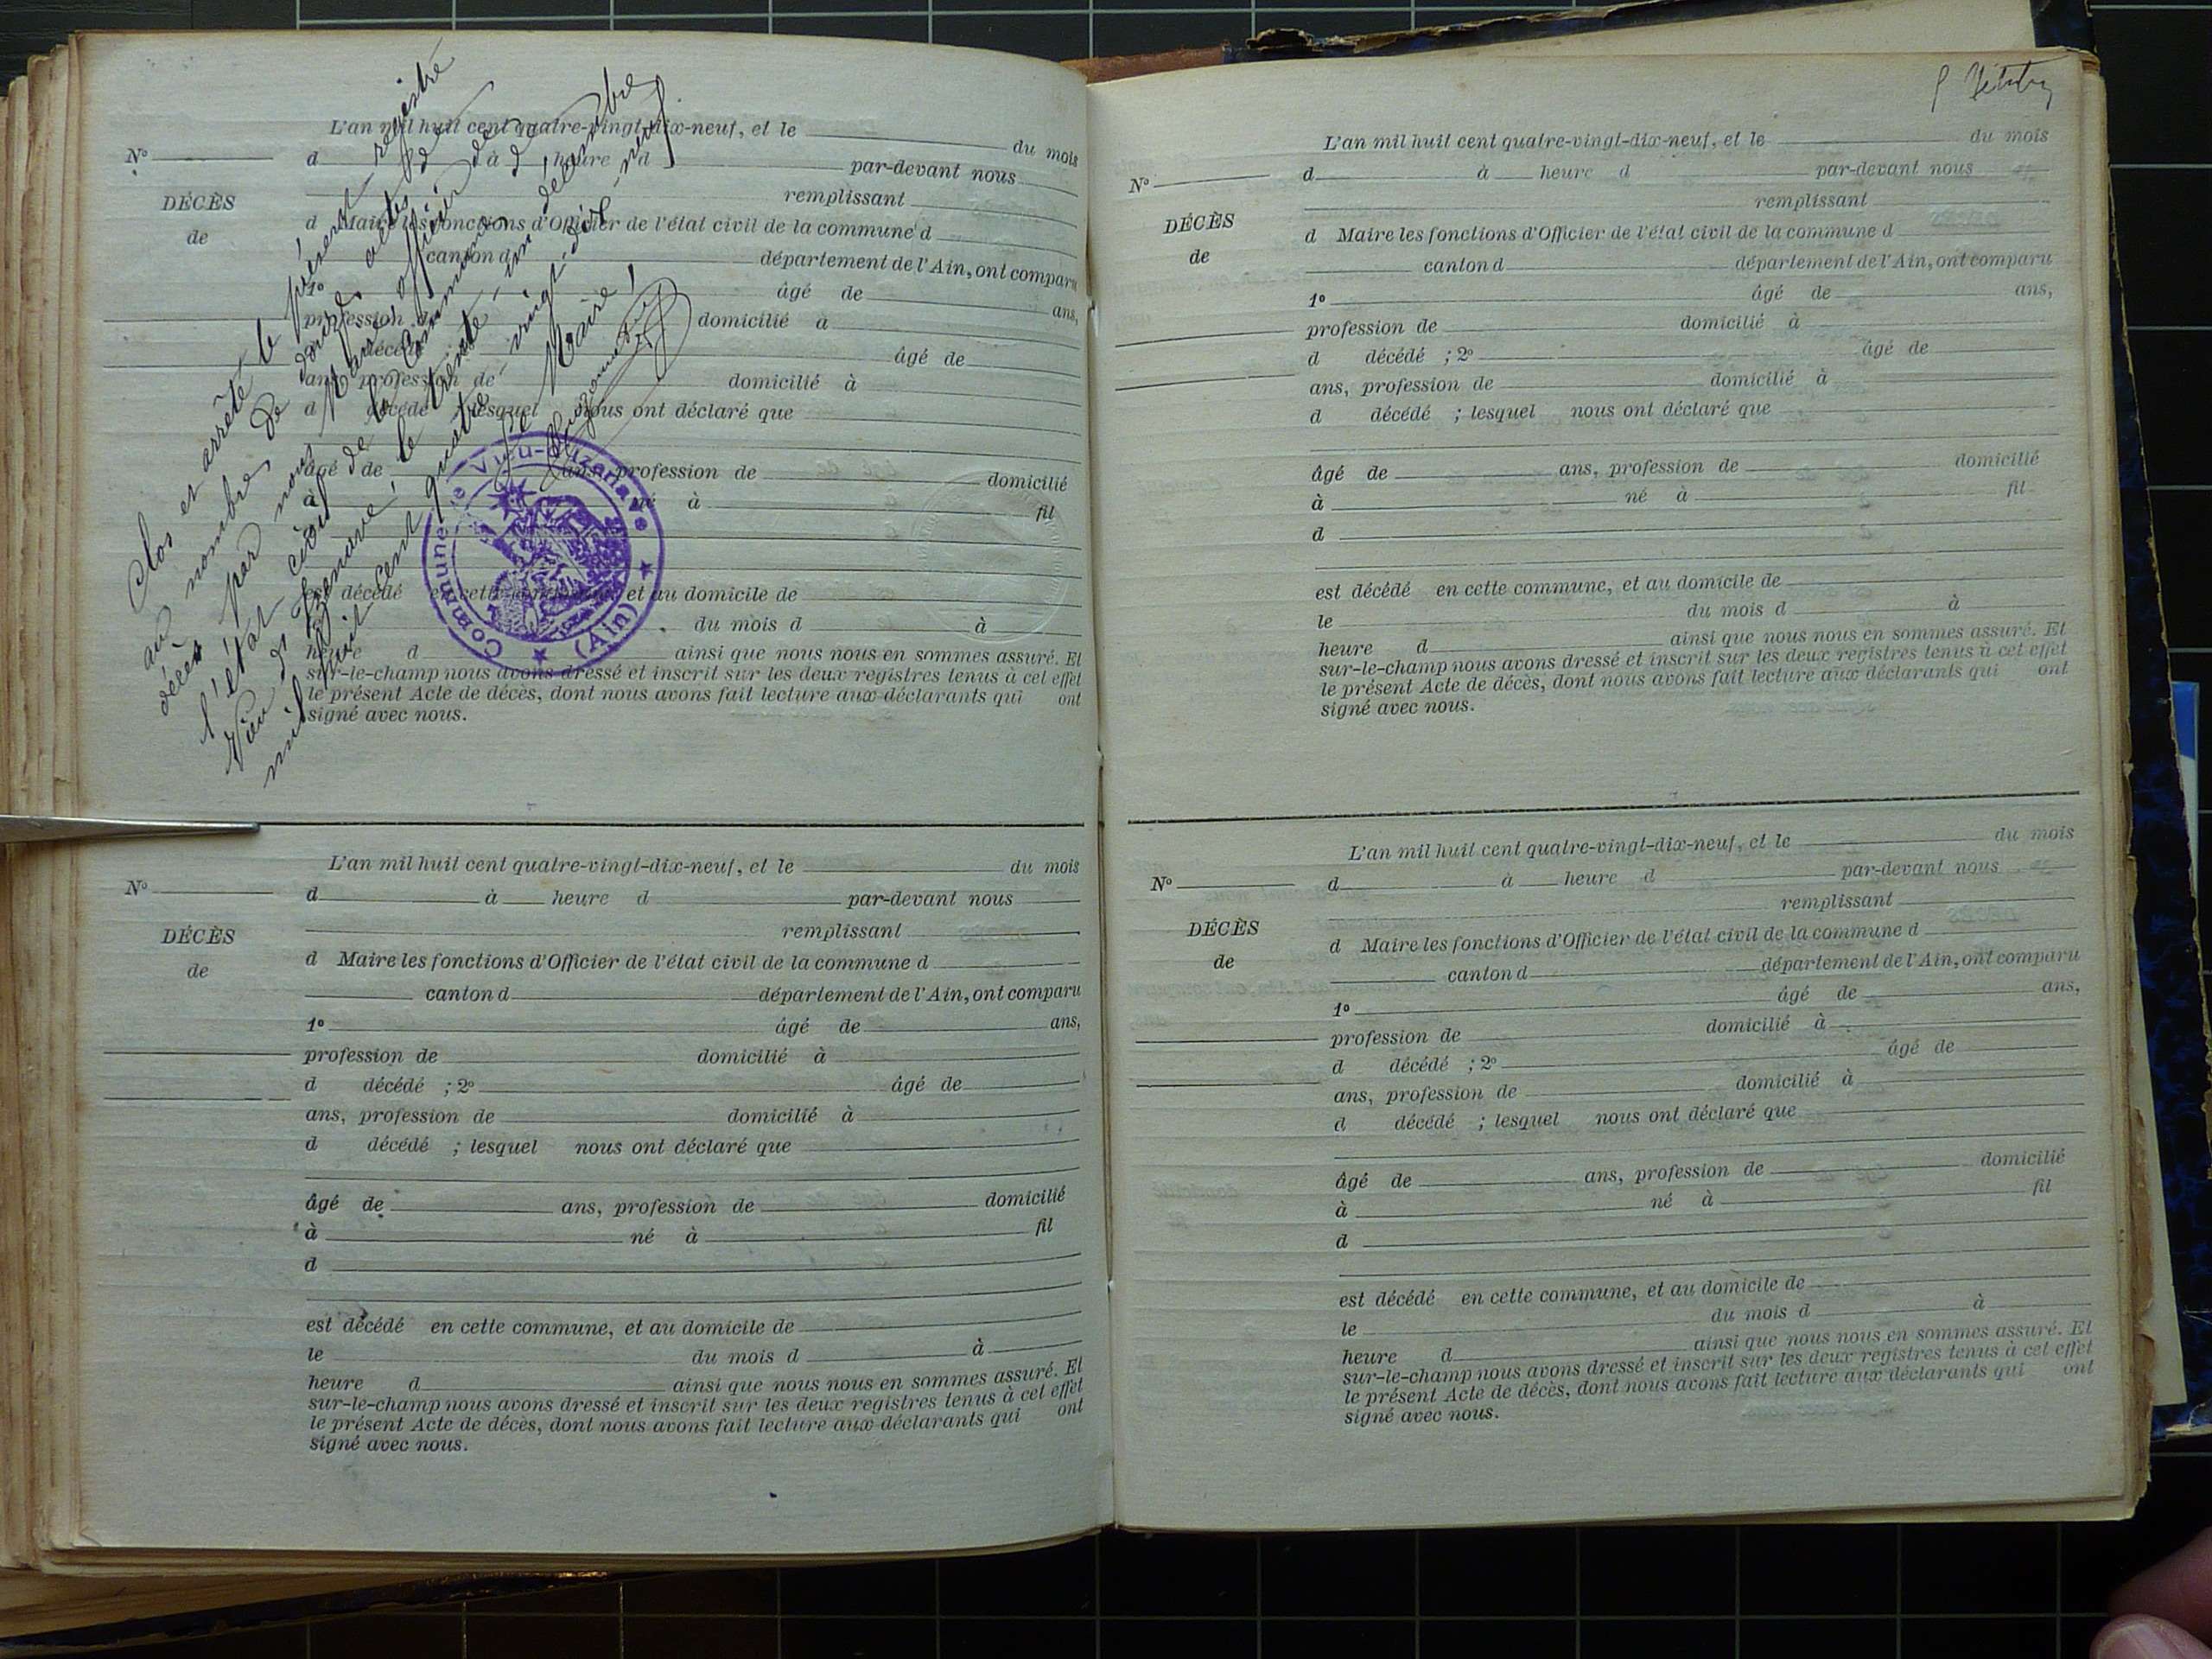 L'an mil huit cent quatre-vingt-dix-neuf, et le du mois
d à heure d par-devant nous
remplissant
d Maire les fonctions d'Officier de l'état civil de la commune d
canton d département de l'Ain, ont comparu
1º âgé de ans,
profession d domicilié à
décédé âgé de
ans, profession de domicilié à
d décédé lesquel nous ont déclaré que
âgé de ans, profession de domicilié
à né à fil
est décédé en cette commune, et au domicile de
du mois d à
heure d ainsi que nous nous en sommes assuré. Et
sur-le-champ nous avons dressé et inscrit sur les deux registres tenus à cet effet
le présent Acte de décès, dont nous avons fait lecture aux déclarants qui ont
signé avec nous.
Nº
DÉCÈS
de
Clos et arrêté le présent registre
au nombre de douze actes de
décès par nous Maire officier de
l'état civil de la Commune de
Vieu-d'Izenave, le trente-un décembre
mil huit cent quatre-vingt-dix-neuf
Le Maire!
Commune de Vieu-d'Izenave
(Ain)
L'an mil huit cent quatre-vingt-dix-neuf, et le du mois
Nº d à heure d par-devant nous
remplissant
DÉCÈS
de
d Maire les fonctions d'Officier de l'état civil de la commune d
canton d département de l'Ain, ont comparu
1º âgé de ans,
profession de domicilié à
d décédé ; 2º âgé de
ans, profession de domicilié à
d décédé ; lesquel nous ont déclaré que
âgé de ans, profession de domicilié
à né à fil
d
est décédé en cette commune, et au domicile de
le du mois d à
heure d ainsi que nous nous en sommes assuré. Et
sur-le-champ nous avons dressé et inscrit sur les deux registres tenus à cet effet
le présent Acte de décès, dont nous avons fait lecture aux déclarants qui ont
signé avec nous.
L'an mil huit cent quatre-vingt-dix-neuf, et le du mois
Nº d à heure d par-devant nous
remplissant
DÉCÈS
de
d Maire les fonctions d'Officier de l'état civil de la commune d
canton d département de l'Ain, ont comparu
1º âgé de ans,
profession de domicilié à
d décédé ; 2º âgé de
ans, profession de domicilié à
d décédé ; lesquel nous ont déclaré que
âgé de ans, profession de domicilié
à né à fil
d
est décédé en cette commune, et au domicile de
le du mois d à
heure d ainsi que nous nous en sommes assuré. Et
sur-le-champ nous avons dressé et inscrit sur les deux registres tenus à cet effet
le présent Acte de décès, dont nous avons fait lecture aux déclarants qui ont
signé avec nous.
L'an mil huit cent quatre-vingt-dix-neuf, et le du mois
Nº d à heure d par-devant nous
remplissant
DÉCÈS
de
d Maire les fonctions d'Officier de l'état civil de la commune d
canton d département de l'Ain, ont comparu
1º âgé de ans,
profession de domicilié à
d décédé ; 2º âgé de
ans, profession de domicilié à
d décédé ; lesquel nous ont déclaré que
âgé de ans, profession de domicilié
à né à fil
d
est décédé en cette commune, et au domicile de
le du mois d à
heure d ainsi que nous nous en sommes assuré. Et
sur-le-champ nous avons dressé et inscrit sur les deux registres tenus à cet effet
le présent Acte de décès, dont nous avons fait lecture aux déclarants qui ont
signé avec nous.